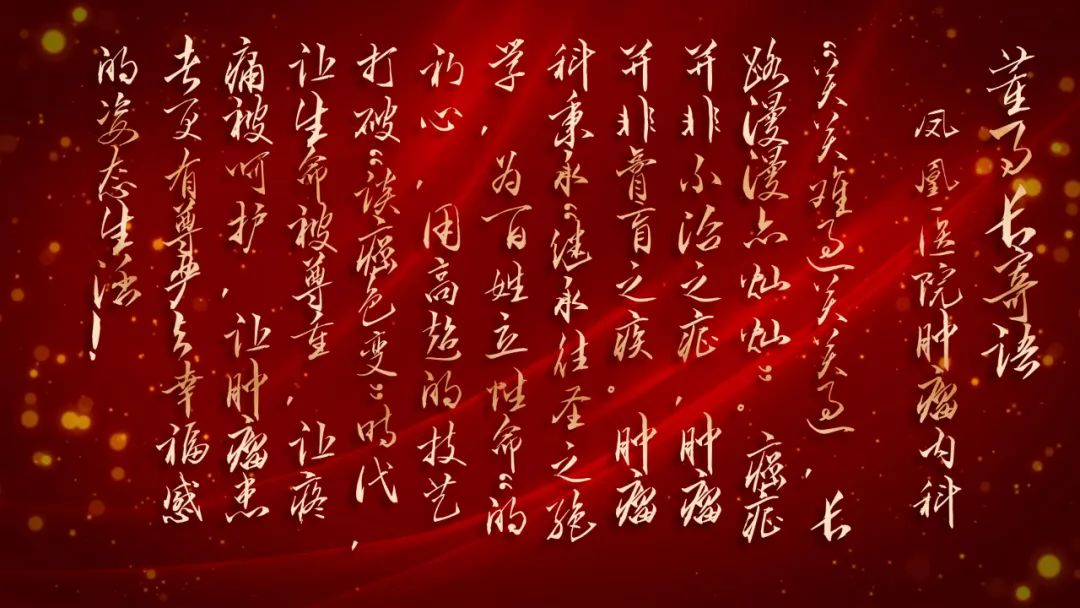 董事长寄语
凤凰医院肿瘤内科
“关关难过关关过，长
路漫漫亦灿灿”。癌症
并非不治之症，肿瘤
并非膏肓之疾。肿瘤
科秉承“继承往圣之绝
学，为百姓立性命“的
初心，用高超的技艺
打破“谈癌色变”时代，
让生命被尊重，让疼
痛被呵护，让肿瘤患
者更有尊严与幸福感
的姿态生活！